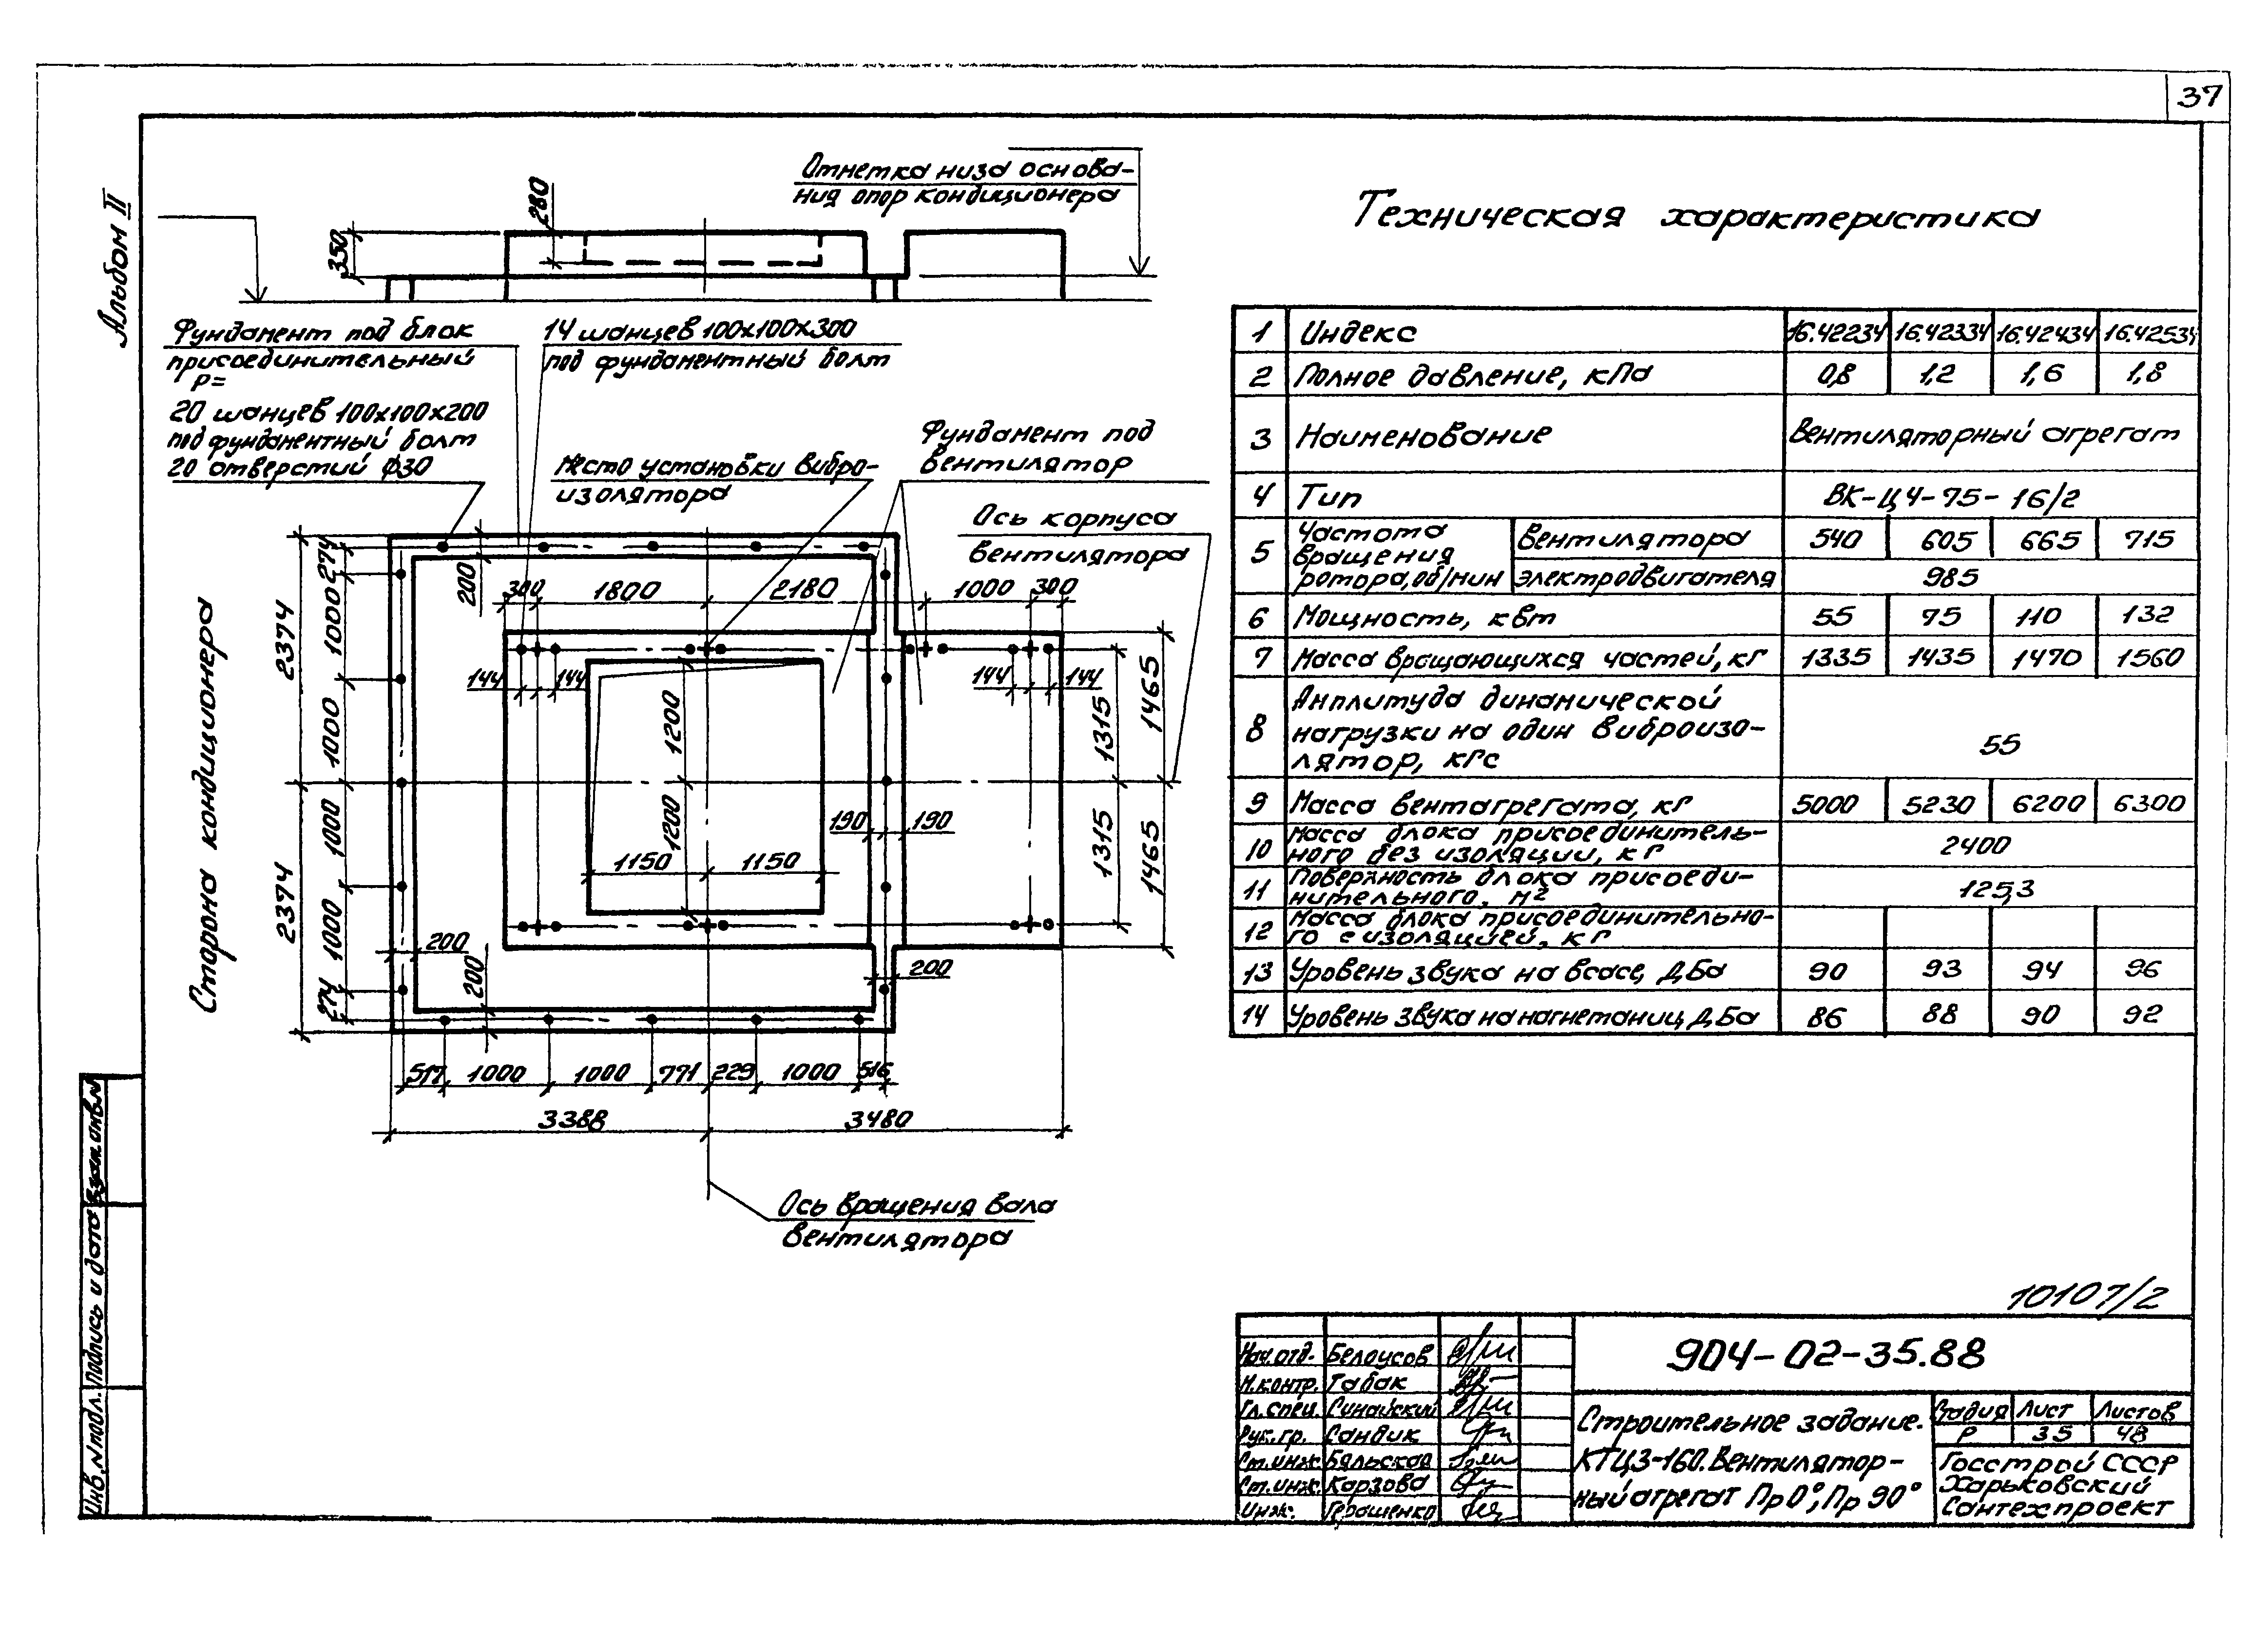 37
Альбом II
Отметка низа основа-
ния опор кондиционера
280
350
Фундамент под блок
присоединительный
Р=
14 шанцев 100х100х300
под фундаментный болт
20 шанцев 100х100х200
под фундаментный болт
20 отверстий ф30
Место установки вибро-
изолятора
Фундамент под
вентилятор
Ось корпуса
вентилятора
Сторона кондиционера
274
200
300 1800 2180 1000 300
2374
1000
144 144 144 144
1000
1200
1315
1465
190 190
1000
1200
1150 1150
1315
1465
2374
1000
200
200
200
274
517 1000 1000 771 229 1000 516
3388 3480
Ось вращения вала
вентилятора
Техническая характеристика
1 Индекс 16.42234 16.42334 16.42434 16.42534
2 Полное давление, кПа 0,8 1,2 1,6 1,8
3 Наименование Вентиляторный агрегат
4 Тип ВК-Ц4-75-16/2
5 Частота вращения ротора, об/мин вентилятора 540 605 665 715
электродвигателя 985
6 Мощность, квт 55 75 110 132
7 Масса вращающихся частей, кг 1335 1435 1470 1560
8 Амплитуда динамической
нагрузки на один виброизо-
лятор, кгс 55
9 Масса вентагрегата, кг 5000 5230 6200 6300
10 Масса блока присоединитель-
ного без изоляции, кг 2400
11 Поверхность блока присоеди-
нительного, м2 125,3
12 Масса блока присоединительно-
го с изоляцией, кг
13 Уровень звука на всасе, дБа 90 93 94 96
14 Уровень звука на нагнетании, дБа 86 88 90 92
10107/2
904-02-35.88
Нач.отд. Белоусов
Н.контр. Табак
Гл.спец. Синайский
Рук.гр. Сандик
Ст.инж. Бяльская
Ст.инж. Карзова
Инж. Герашенко
Строительное задание.
КТЦ3-160. Вентилятор-
ный агрегат Пр0°, Пр90°
Стадия Лист Листов
Р 35 48
Госстрой СССР
Харьковский
Сантехпроект
Инв.№подл. Подпись и дата Взам.инв.№